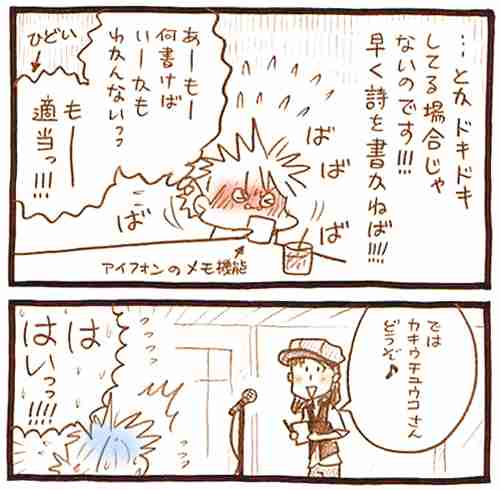 …とか ドキドキ
してる場合じゃ
ないのです!!!
早く詩を書かねば!!!!
あーもー
何書けば
いーかも
わかんないっっ
もー
適当っ!!!
ひどい
ばばば
こば
アイフォンのメモ機能
では
カキウチユウコさん
どうぞ♪
っっっ
は
はいっっ!!!!